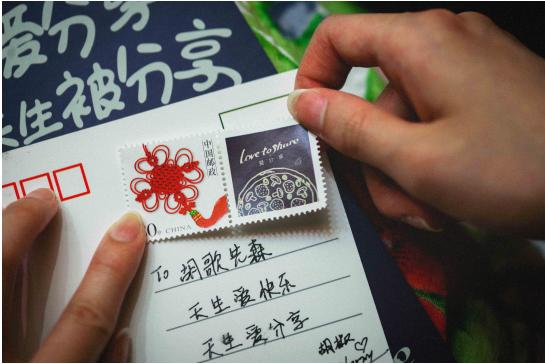 爱分享
天生被分享
中国邮政
CHINA
Love to share
爱分享
To 胡歌先森
天生爱快乐
天生爱分享
胡椒♡